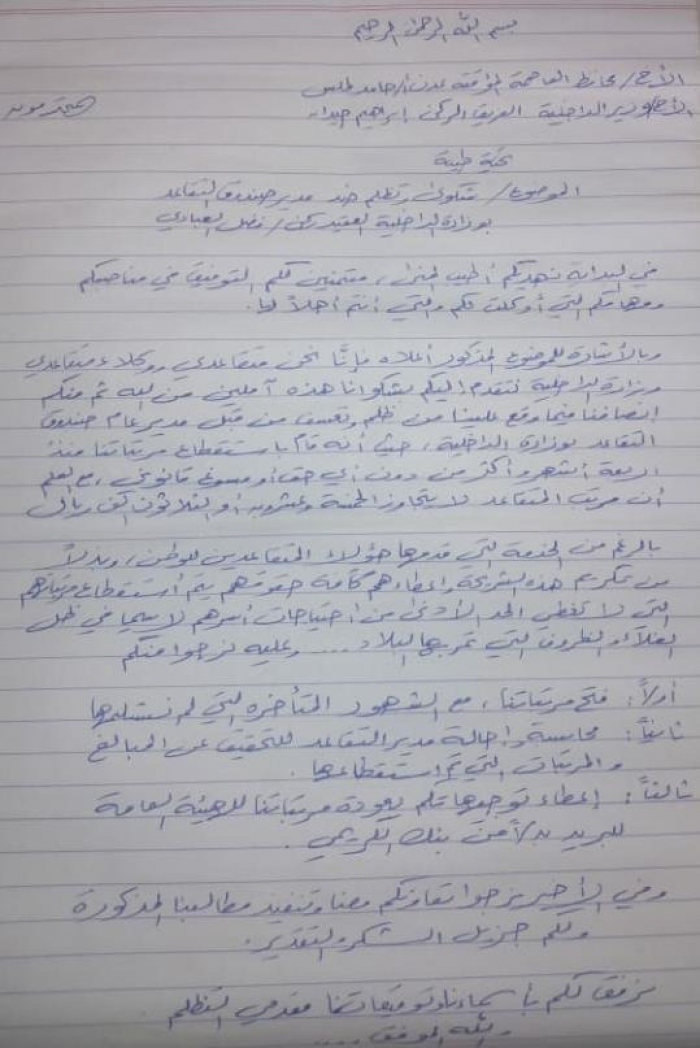 بسم الله الرحمن الرحيم
الأخ/ محافظ العاصمة المؤقتة عدن أ/حامد لملس
الأخ/ وزير الداخلية الفريق الركن إبراهيم حيدان المحترمون
تحية طيبة
الموضوع/ شكوى وتظلم ضد مدير صندوق التقاعد
بوزارة الداخلية العقيد ركن/ فضل العبادي
في البداية نهديكم أطيب المنى، متمنيين لكم التوفيق في مناصبكم
ومهامكم التي أوكلت لكم والتي أنتم أهلاً لها.
وبالأشارة للموضوع المذكور أعلاه فإننا نحن متقاعدي ووكلاء متقاعدي
وزارة الداخلية نتقدم إليكم بشكوانا هذه آملين من الله ثم منكم
إنصافنا فيما وقع علينا من ظلم وتعسف من قبل مدير عام صندوق
التقاعد بوزارة الداخلية، حيث أنه قام باستقطاع مرتباتنا منذ
اربعة أشهر وأكثر من دون أي حق أو مسوغ قانوني، مع العلم
أن مرتب المتقاعد لا يتجاوز الخمسة وعشرون أو الثلاثون الف ريال
بالرغم من الخدمة التي قدموها هؤلاء المتقاعدين للوطن، وبدلاً
من تكريم هذه الشريحة وإعطاءهم كآفة حقوقهم يتم أستقطاع مرتباتهم
التي لا تغطي الحد الأدنى من أحتياجات أسرهم لا سيما في ظل
الغلاء والظروف التي تمر بها البلاد .... وعليه نرجوا منكم
أولاً: فتح مرتباتنا، مع الشهور المتأخره التي لم نستلمها
ثانياً: محاسبة وإحالة مدير التقاعد للتحقيق عن المبالغ
والمرتبات التي تم إستقطاعها.
ثالثاً: إعطاء توجيهاتكم بعودة مرتباتنا للهيئة العامة
للبريد بدلاً من بنك الكريمي.
وفي الأخير نرجوا تعاونكم معنا وتنفيذ مطالبنا المذكورة
ولكم جزيل الشكر والتقدير.
نرفق لكم بأسماءنا وتوقيعاتنا مقدمي التظلم
والله الموفق ....